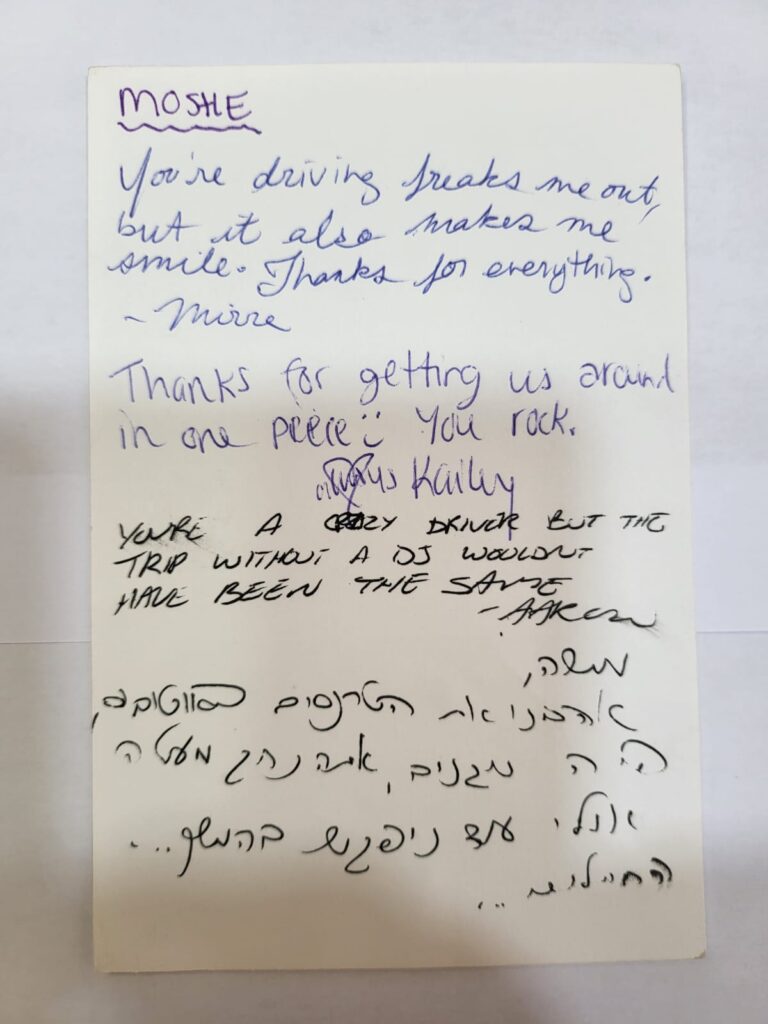 MOSHE
You're driving freaks me out,
but it also makes me
smile. Thanks for everything.
~ Mirre
Thanks for getting us around
in one piece :) You rock.
Kailey
YOU'RE A CRAZY DRIVER BUT THE
TRIP WITHOUT A DJ WOULDN'T
HAVE BEEN THE SAME
- AARON
משה,
אהבנו את הטרנסים
היה מגניב, אתה נהג מעולה
אולי עוד ניפגש בהמשך...
החיילים...